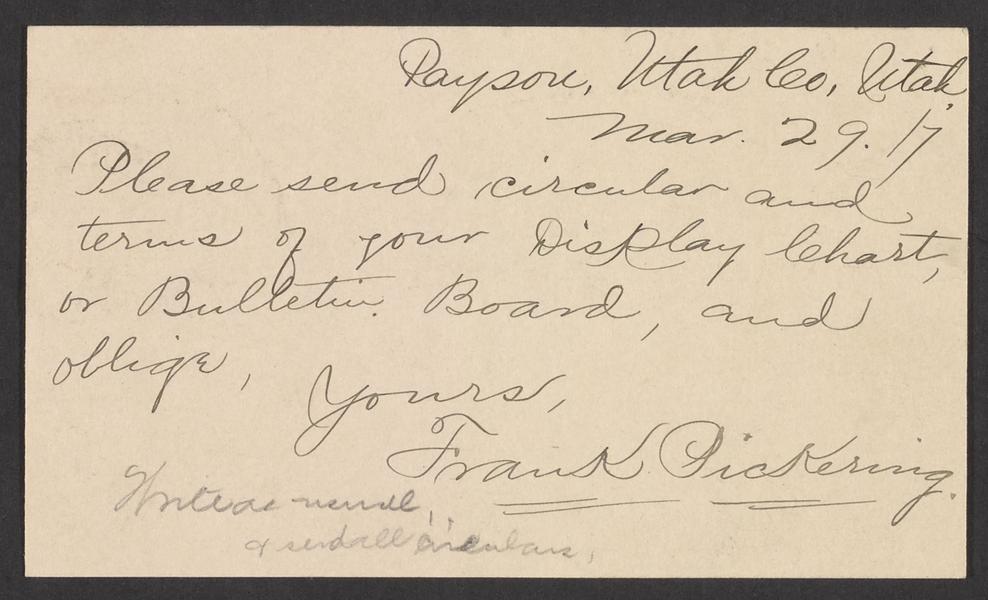 Payson, Utah Co, Utah.
Mar. 29. 17
Please send circular and
terms of your Display Chart,
or Bulletin Board, and
oblige,
Yours,
Frank Pickering.
Write as usual,
& send all circulars,